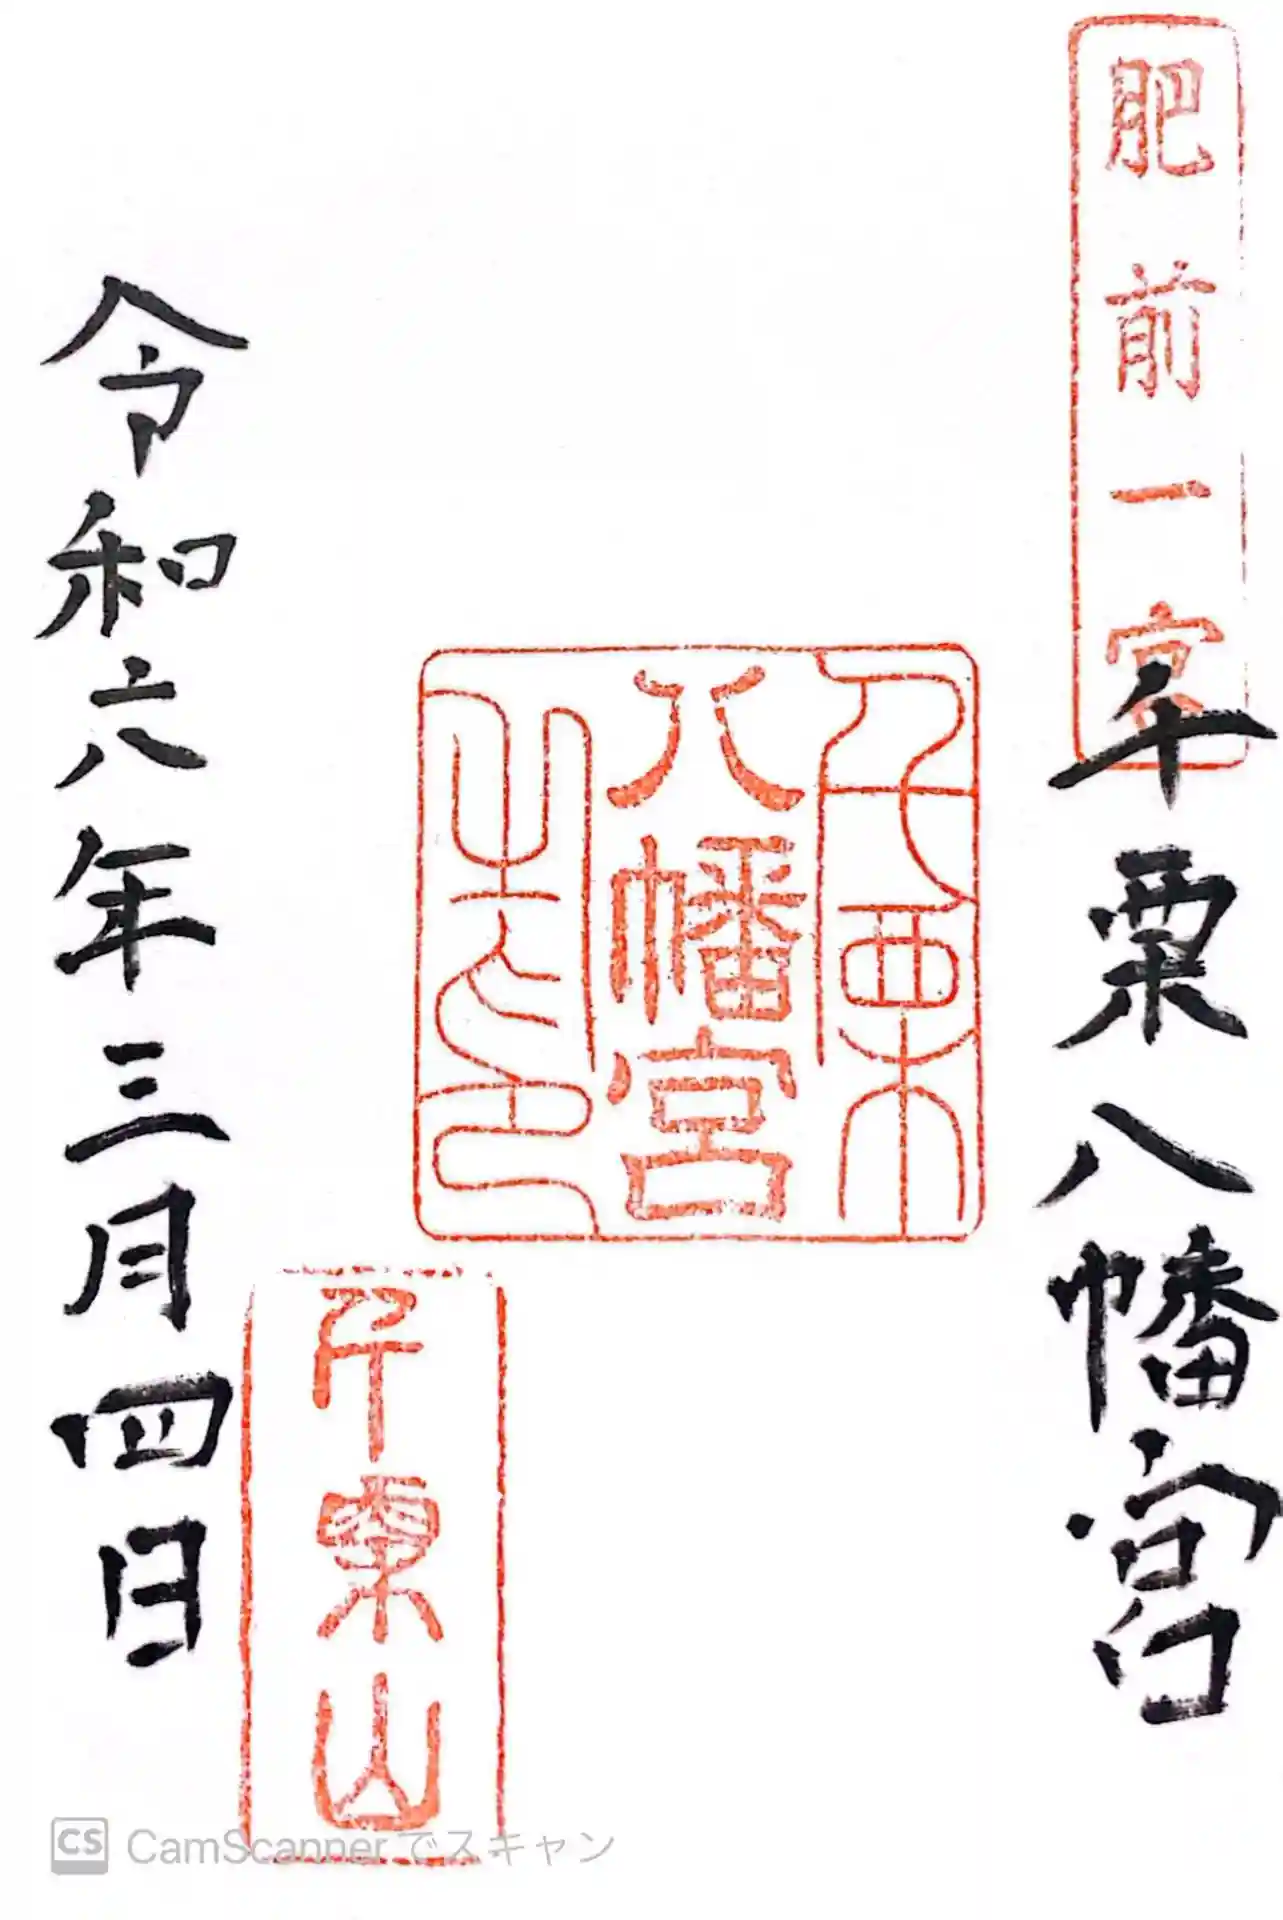 肥前一宮
千栗八幡宮
千栗
八幡宮
之印
千栗山
令和六年三月四日
CS CamScanner でスキャン